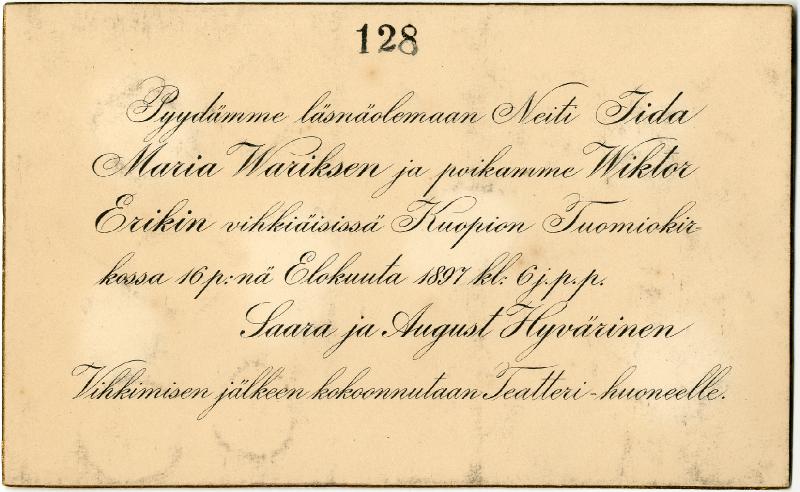 128
Pyydämme läsnäolemaan Neiti Iida
Maria Wariksen ja poikamme Wiktor
Erikin vihkiäisissä Kuopion Tuomiokir-
kossa 16 p:nä Elokuuta 1897 kl: 6 j.p.p.
Saara ja August Hyvärinen
Vihkimisen jälkeen kokoonnutaan Teatteri-huoneelle.